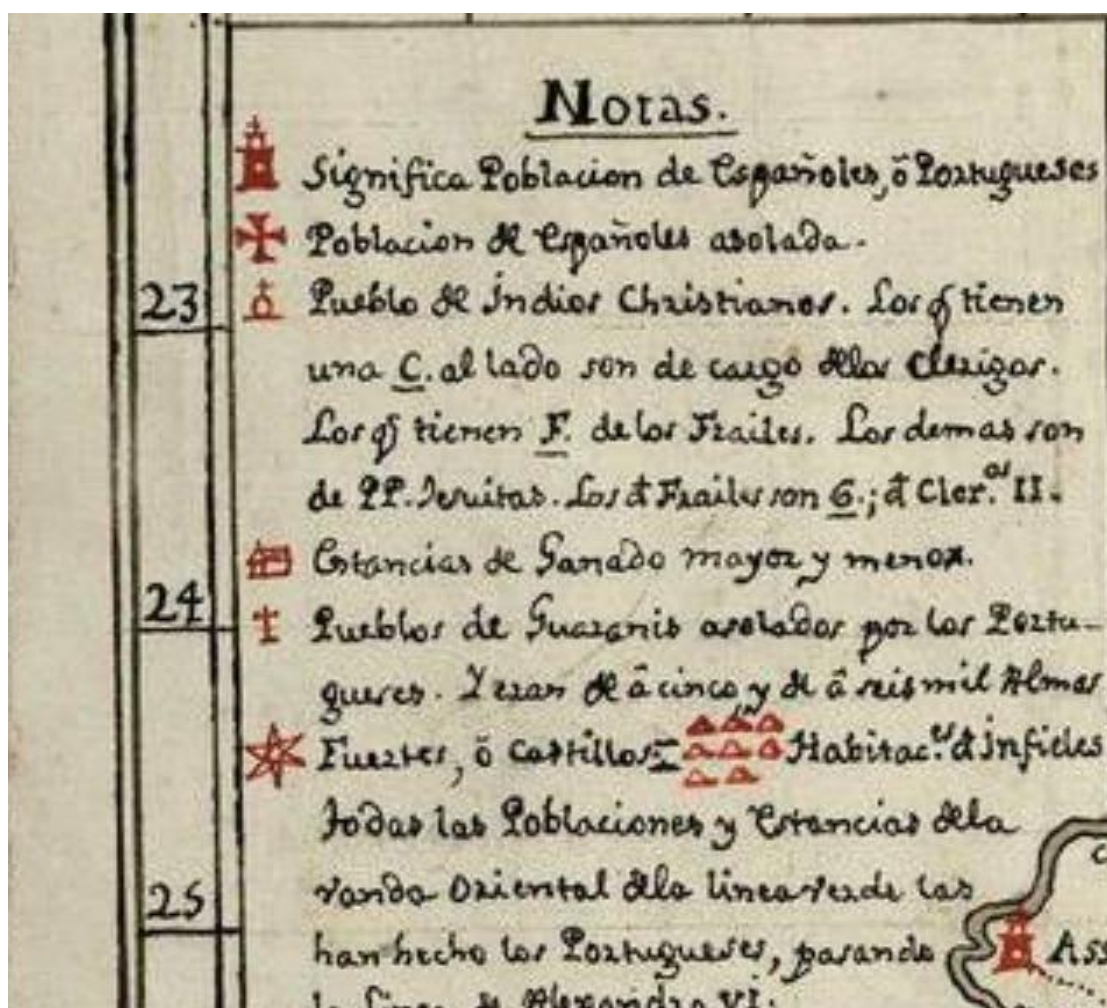 Notas.
Significa Poblacion de Españoles, ô Portugueses
Poblacion de Españoles asolada.
23
Pueblo de Indios Christianos. Los q̃ tienen
una C. al lado son de cargo delos Clerigos.
Los q̃ tienen F. de los Frailes. Los demas son
de PP. Jesuitas. Los d̃ Frailes son 6.; d̃ Cler.os II.
Estancias de Ganado mayor y menor.
24
Pueblos de Guaranis asolados por los Portu-
gueses. Y eran de â cinco y de â seis mil Almas
Fuertes, ô Castillos Habitac.es d̃ infieles
todas las Poblaciones y Estancias dela
vanda Oriental dela linea verde las
25
han hecho los Portugueses, pasando
Ass
la linea de Alexandro VI.